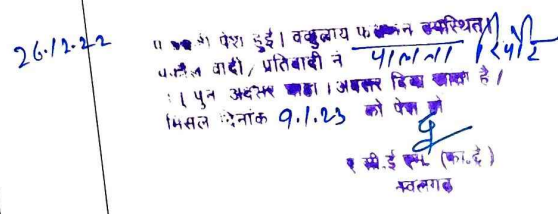 26.12.22
पेश हुई। वकुलाय फ उपस्थित।
वादी/प्रतिवादी ने पालना रिपोर्ट
। पुन अवसर चाहा। अवसर दिया जाता है।
मिसल दिनांक 9.1.23 को पेश हो
सी.ई एम. (का.दे)